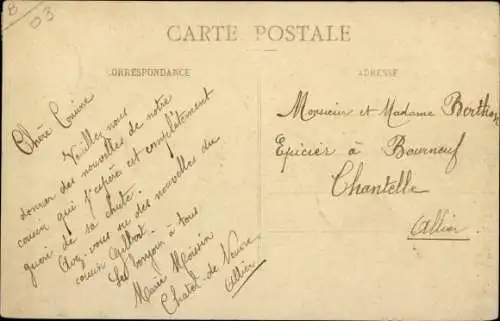 B
03
CARTE POSTALE
CORRESPONDANCE
ADRESSE
Chère Cousine
Veuillez nous
donner des nouvelles de notre
cousin qui j'espère est complètement
guéri de sa chute.
Avez-vous eu des nouvelles du
cousin Gilbert.
Bonjour à tous
Marie Moissin
Chatel-de-Neuvre
Allier
Monsieur et Madame Berthon
Epicier à Bourneuf
Chantelle
Allier